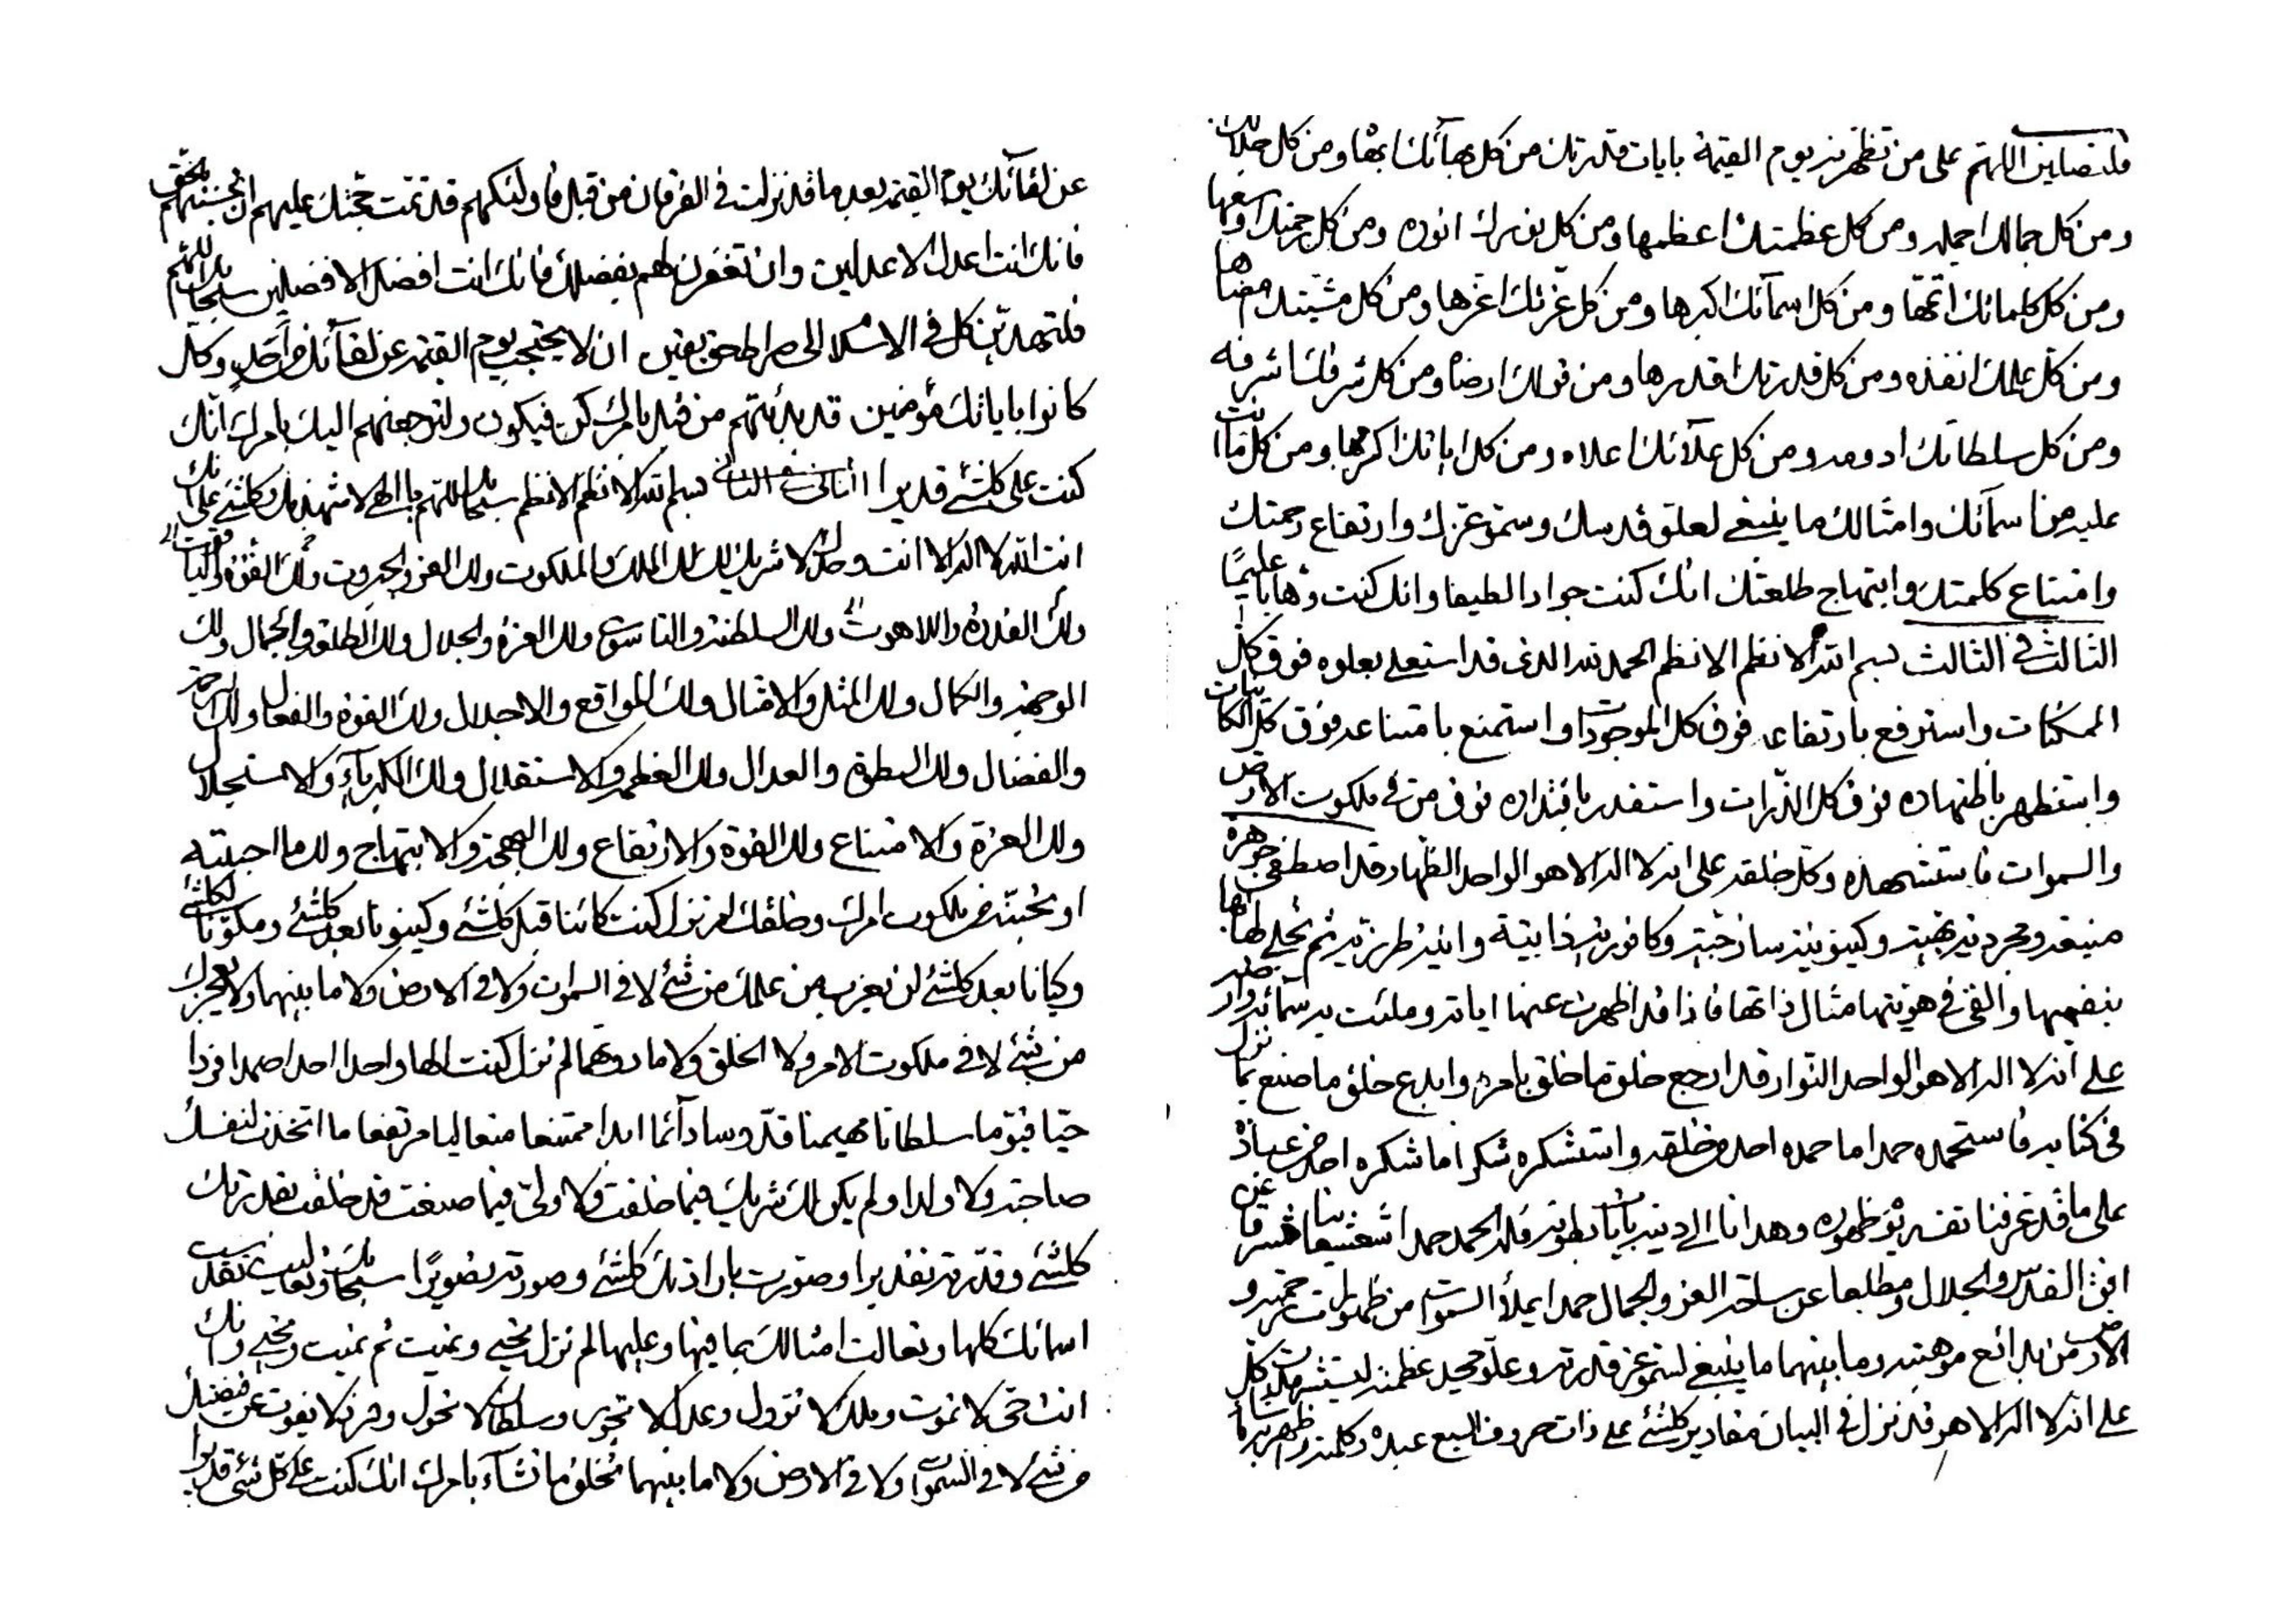 عن لقآئك يوم القيمة بعد ما قد نزلت في الفرقان من قبل فاولئكهم قد تمت حجتك عليهم ان تحسبنهم بحق
فانك انت اعدل الاعدلين وان تغفرن لهم بفضلك فانك انت افضل الافضلين سبحانك اللهم
فلتهدين كل في الاسلام الى صراط حق يقين ان لا يحتجب يوم القيمة عن لقآئك من احد وكل
كانوا باياتك مؤمنين قد بدئتهم من قبل بامرك كن فيكون ولترجعنهم اليك بامرك انك
كنت على كلشئ قديرا الثاني في الثاني بسم الله الانظم الانظم سبحانك اللهم يا الهي لاشهدنك وكلشئ على انك
انت الله لا اله الا انت وحدك لا شريك لك لك الملك والملكوت ولك العز والجبروت ولك القوة والياقوت
ولك القدرة واللاهوت ولك السلطنة والناسوت ولك العزة والجلال ولك الطلعة والجمال ولك
الوجهة والكمال ولك المثل والامثال ولك المواقع والاجلال ولك القوة والفعال ولك الرحمة
والفضال ولك السطوة والعدال ولك العظمة والاستقلال ولك الكبرياء والاستجلال
ولك العزة والامتناع ولك القوة والارتفاع ولك البهجة والابتهاج ولك ما احببته
او تحبنه من ملكوت امرك وخلقك لم تزل كنت كائنا قبل كلشئ وكينونا بعد كلشئ ومكونا لكلشئ
وكيانا بعد كلشئ لن يعزب من علمك من شئ لا في السموات ولا في الارض ولا ما بينهما ولا يعجزك
من شئ لا في ملكوت الامر ولا الخلق ولا ما دونهما لم تزل كنت الها واحدا احدا صمدا فردا
حيا قيوما سلطانا مهيمنا قدوسا دآئما ابدا ممتنعا متعاليا مرتفعا ما اتخذت لنفسك
صاحبة ولا ولدا ولم يكن لك شريك فيما خلقت ولا ولي فيما صنعت قد خلقت بقدرتك
كلشئ وقدرته تقديرا وصورت بارادتك كلشئ وصورته تصويرا سبحانك وتعاليت تقدست
اسمائك كلها وتعالت امثالك بما فيها وعليها لم تزل تحيي وتميت ثم تميت وتحيي وانك
انت حي لا تموت وملك لا تزول وعدل لا تجور وسلطان لا تحول وفرد لا يفوت عن قبضتك
من شئ لا في السموات ولا في الارض ولا ما بينهما تخلق ما تشآء بامرك انك كنت على كل شئ قديرا
فلتصلين اللهم على من تظهرنه يوم القيمة بايات قدرتك من كل بهآئك ابهاه ومن كل جلالك
ومن كل جمالك اجمله ومن كل عظمتك اعظمها ومن كل نورك انوره ومن كل رحمتك اوسعها
ومن كل كلماتك اتمها ومن كل اسمآئك اكبرها ومن كل عزتك اعزها ومن كل مشيتك امضاها
ومن كل علمك انفذه ومن كل قدرتك اقدرها ومن قولك ارضاه ومن كل شرفك اشرفه
ومن كل سلطانك ادومه ومن كل علآئك اعلاه ومن كل اياتك اكرمها ومن كل ما انت
عليه من اسمآئك وامثالك ما ينبغي لعلو قدسك وسمو عزك وارتفاع رحمتك
وامتناع كلمتك وابتهاج طلعتك انك كنت جوادا لطيفا وانك كنت وهابا عليما
الثالث في الثالث بسم الله الانظم الانظم الحمد لله الذي قد استعلى بعلوه فوق كل
الممكنات واسترفع بارتفاعه فوق كل الموجودات واستمنع بامتناعه فوق كل الكائنات
واستظهر باظهاره فوق كل الذرات واستقدر باقتداره فوق من في ملكوت الارض
والسموات فاستشهده وكل خلقه على انه لا اله الا هو الواحد الظهار قد اصطفى جوهرة
منيعة ومجردية بهية وكينونية ساذجية وكافورية ذاتية وانية طرزية ثم تجلى لها بها
بنفسها والقى في هويتها مثال ذاتها فاذا قد اظهرت عنها اياته وملئت به سمآئه وارضه
على انه لا اله الا هو الواحد النوار قد ارجع خلق ما خلق بامره وابدع خلق ما صنع بما نزل
في كتابه فاستحمده حمدا ما حمده احد من خلقه واستشكره شكرا ما شكره احد من عباده
على ما قد عرفنا نفسه يوم ظهوره وهدانا الى دينه بايات بطونه فله الحمد حمدا شعشعانيا مشرقا عن
افق القدس والجلال ومطلعا عن ساحة العز والجمال حمدا يملأ السموات من ظهورات رحمته و
الارض من بدائع موهبته وما بينهما ما ينبغي لسمو عز قدرته وعلو مجد عظمته ليستشهدن كل
على انه لا اله الا هو قد نزل في البيان مقادير كلشئ على ذات حروف السبع عبده وكلمته